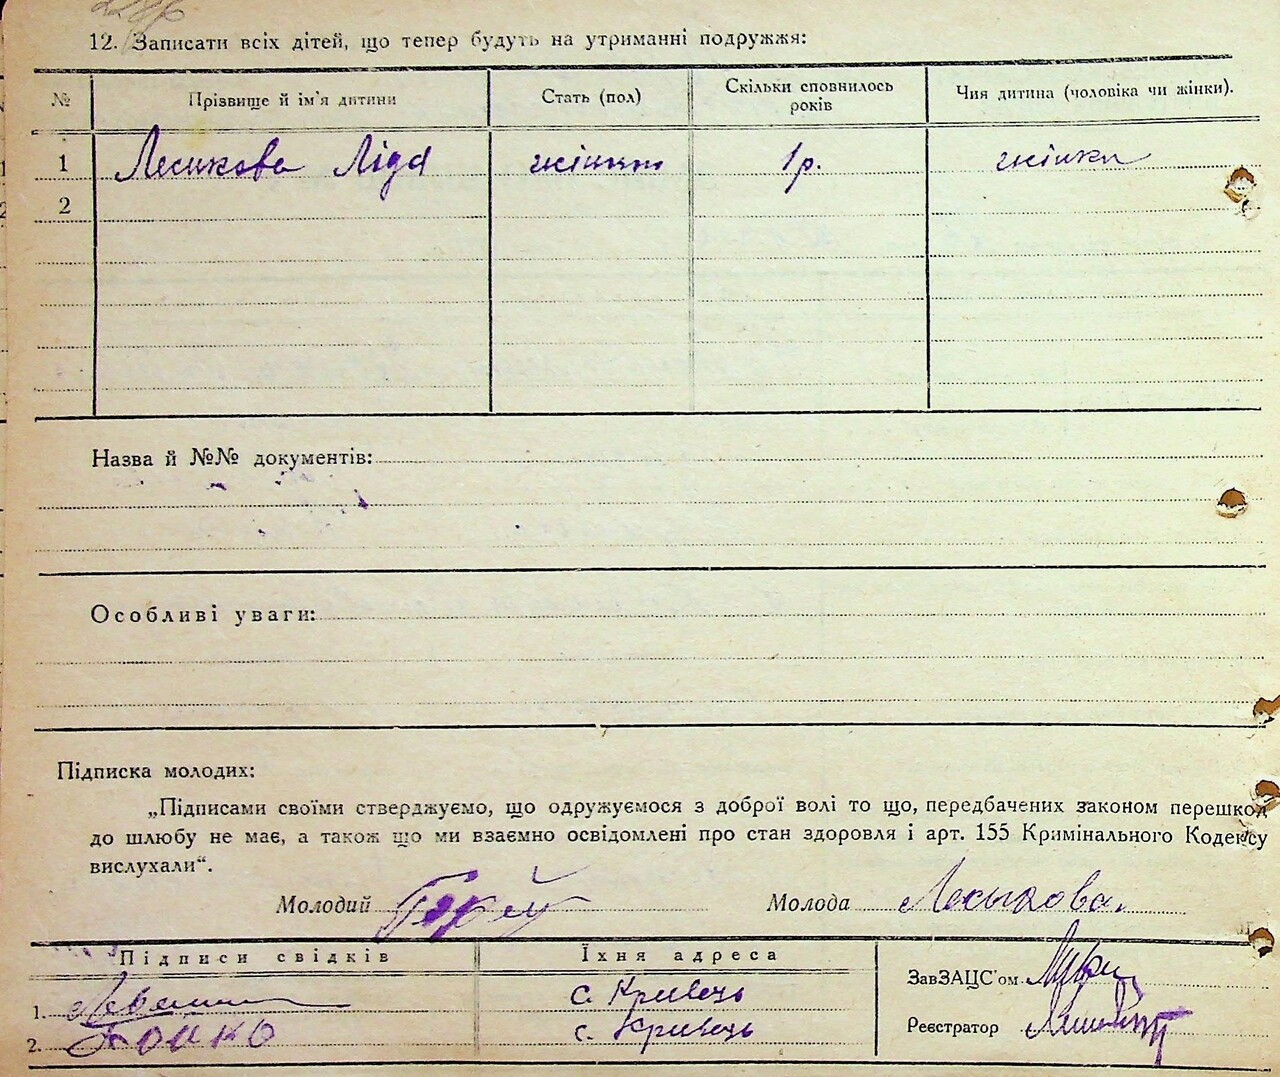 12. Записати всіх дітей, що тепер будуть на утриманні подружжя:
№ Прізвище й ім'я дитини Стать (пол) Скільки сповнилось років Чия дитина (чоловіка чи жінки).
1 Лесикова Ліда 1р. жінки
2
Назва й №№ документів:
Особливі уваги:
Підписка молодих:
„Підписами своїми стверджуємо, що одружуємося з доброї волі то що, передбачених законом перешкод
до шлюбу не має, а також що ми взаємно освідомлені про стан здоровля і арт. 155 Кримінального Кодексу
вислухали“.
Молодий Молода Лесикова.
Підписи свідків Їхня адреса
ЗавЗАЦС'ом
1. с. Кривець
Реєстратор
2. Бойко с. Кривець